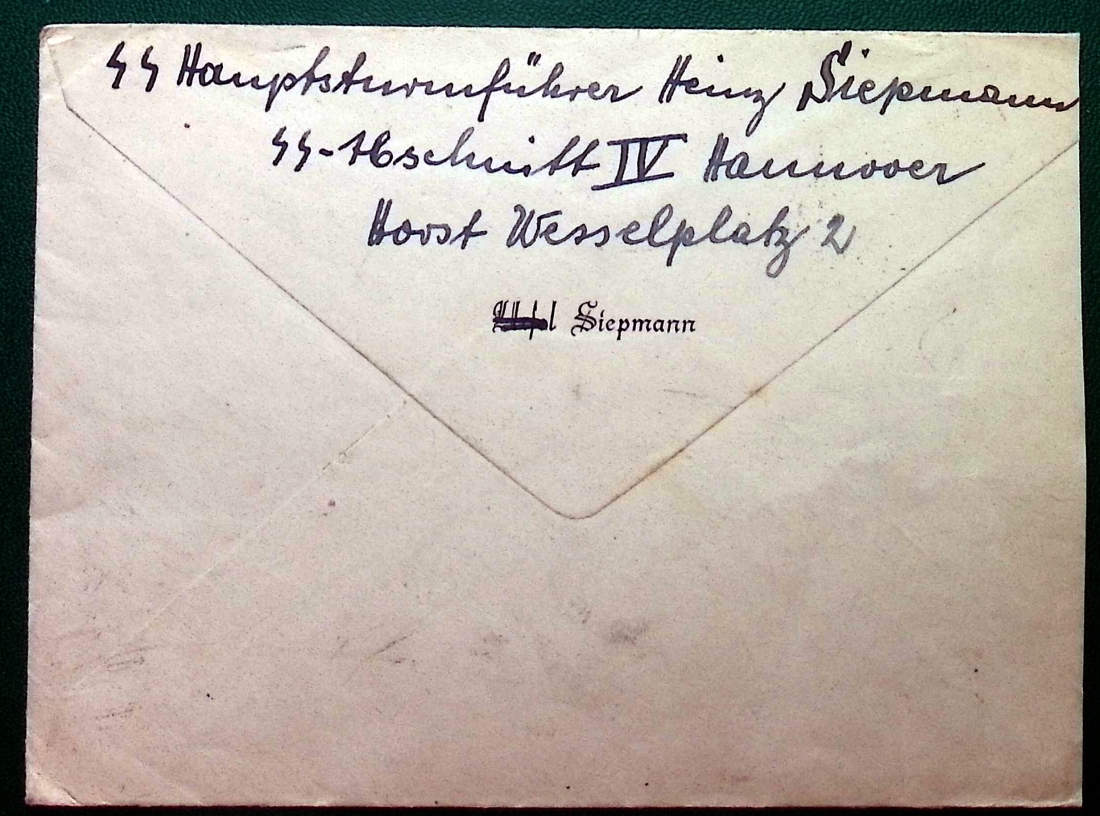 SS Hauptsturmführer Heinz Siepmann
SS-Abschnitt IV Hannover
Horst Wesselplatz 2
Siepmann